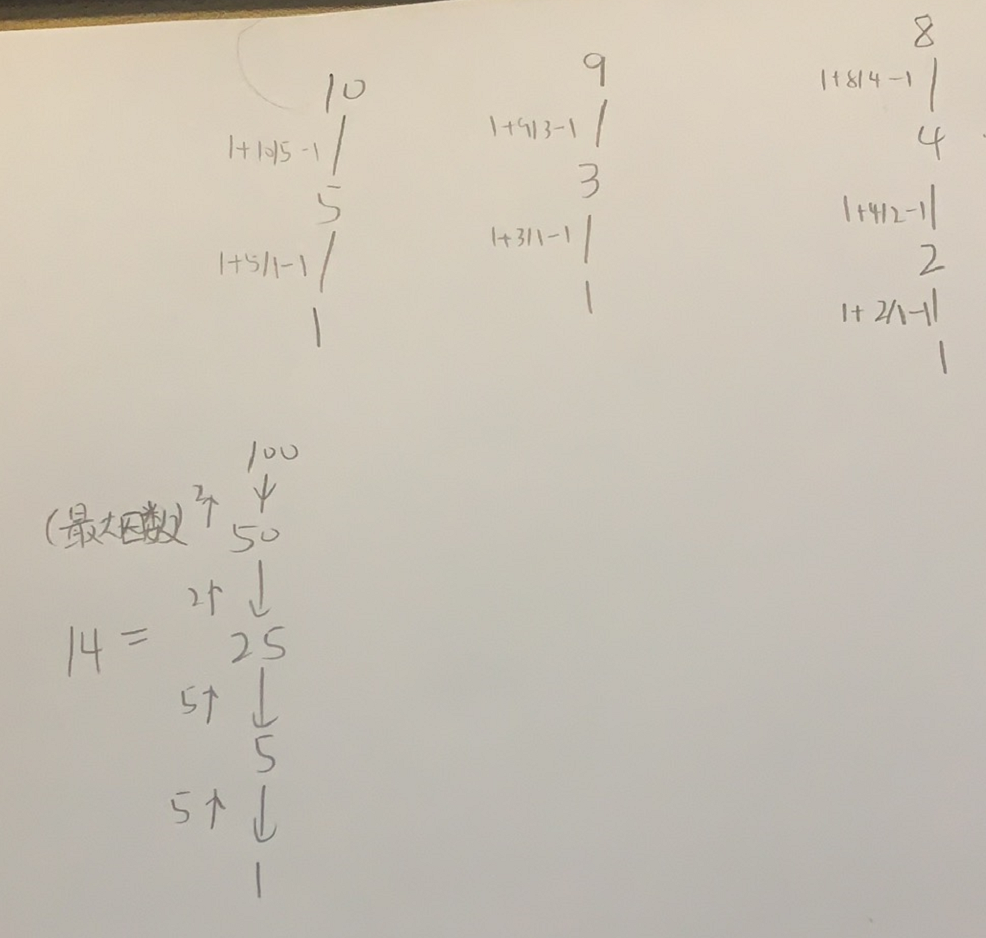 10
1+10/5-1
5
1+5/1-1
1
9
1+9/3-1
3
1+3/1-1
1
8
1+8/4-1
4
1+4/2-1
2
1+2/1-1
1
100
(最大因数) 2↑ ↓
50
2↑ ↓
14 = 25
5↑ ↓
5
5↑ ↓
1